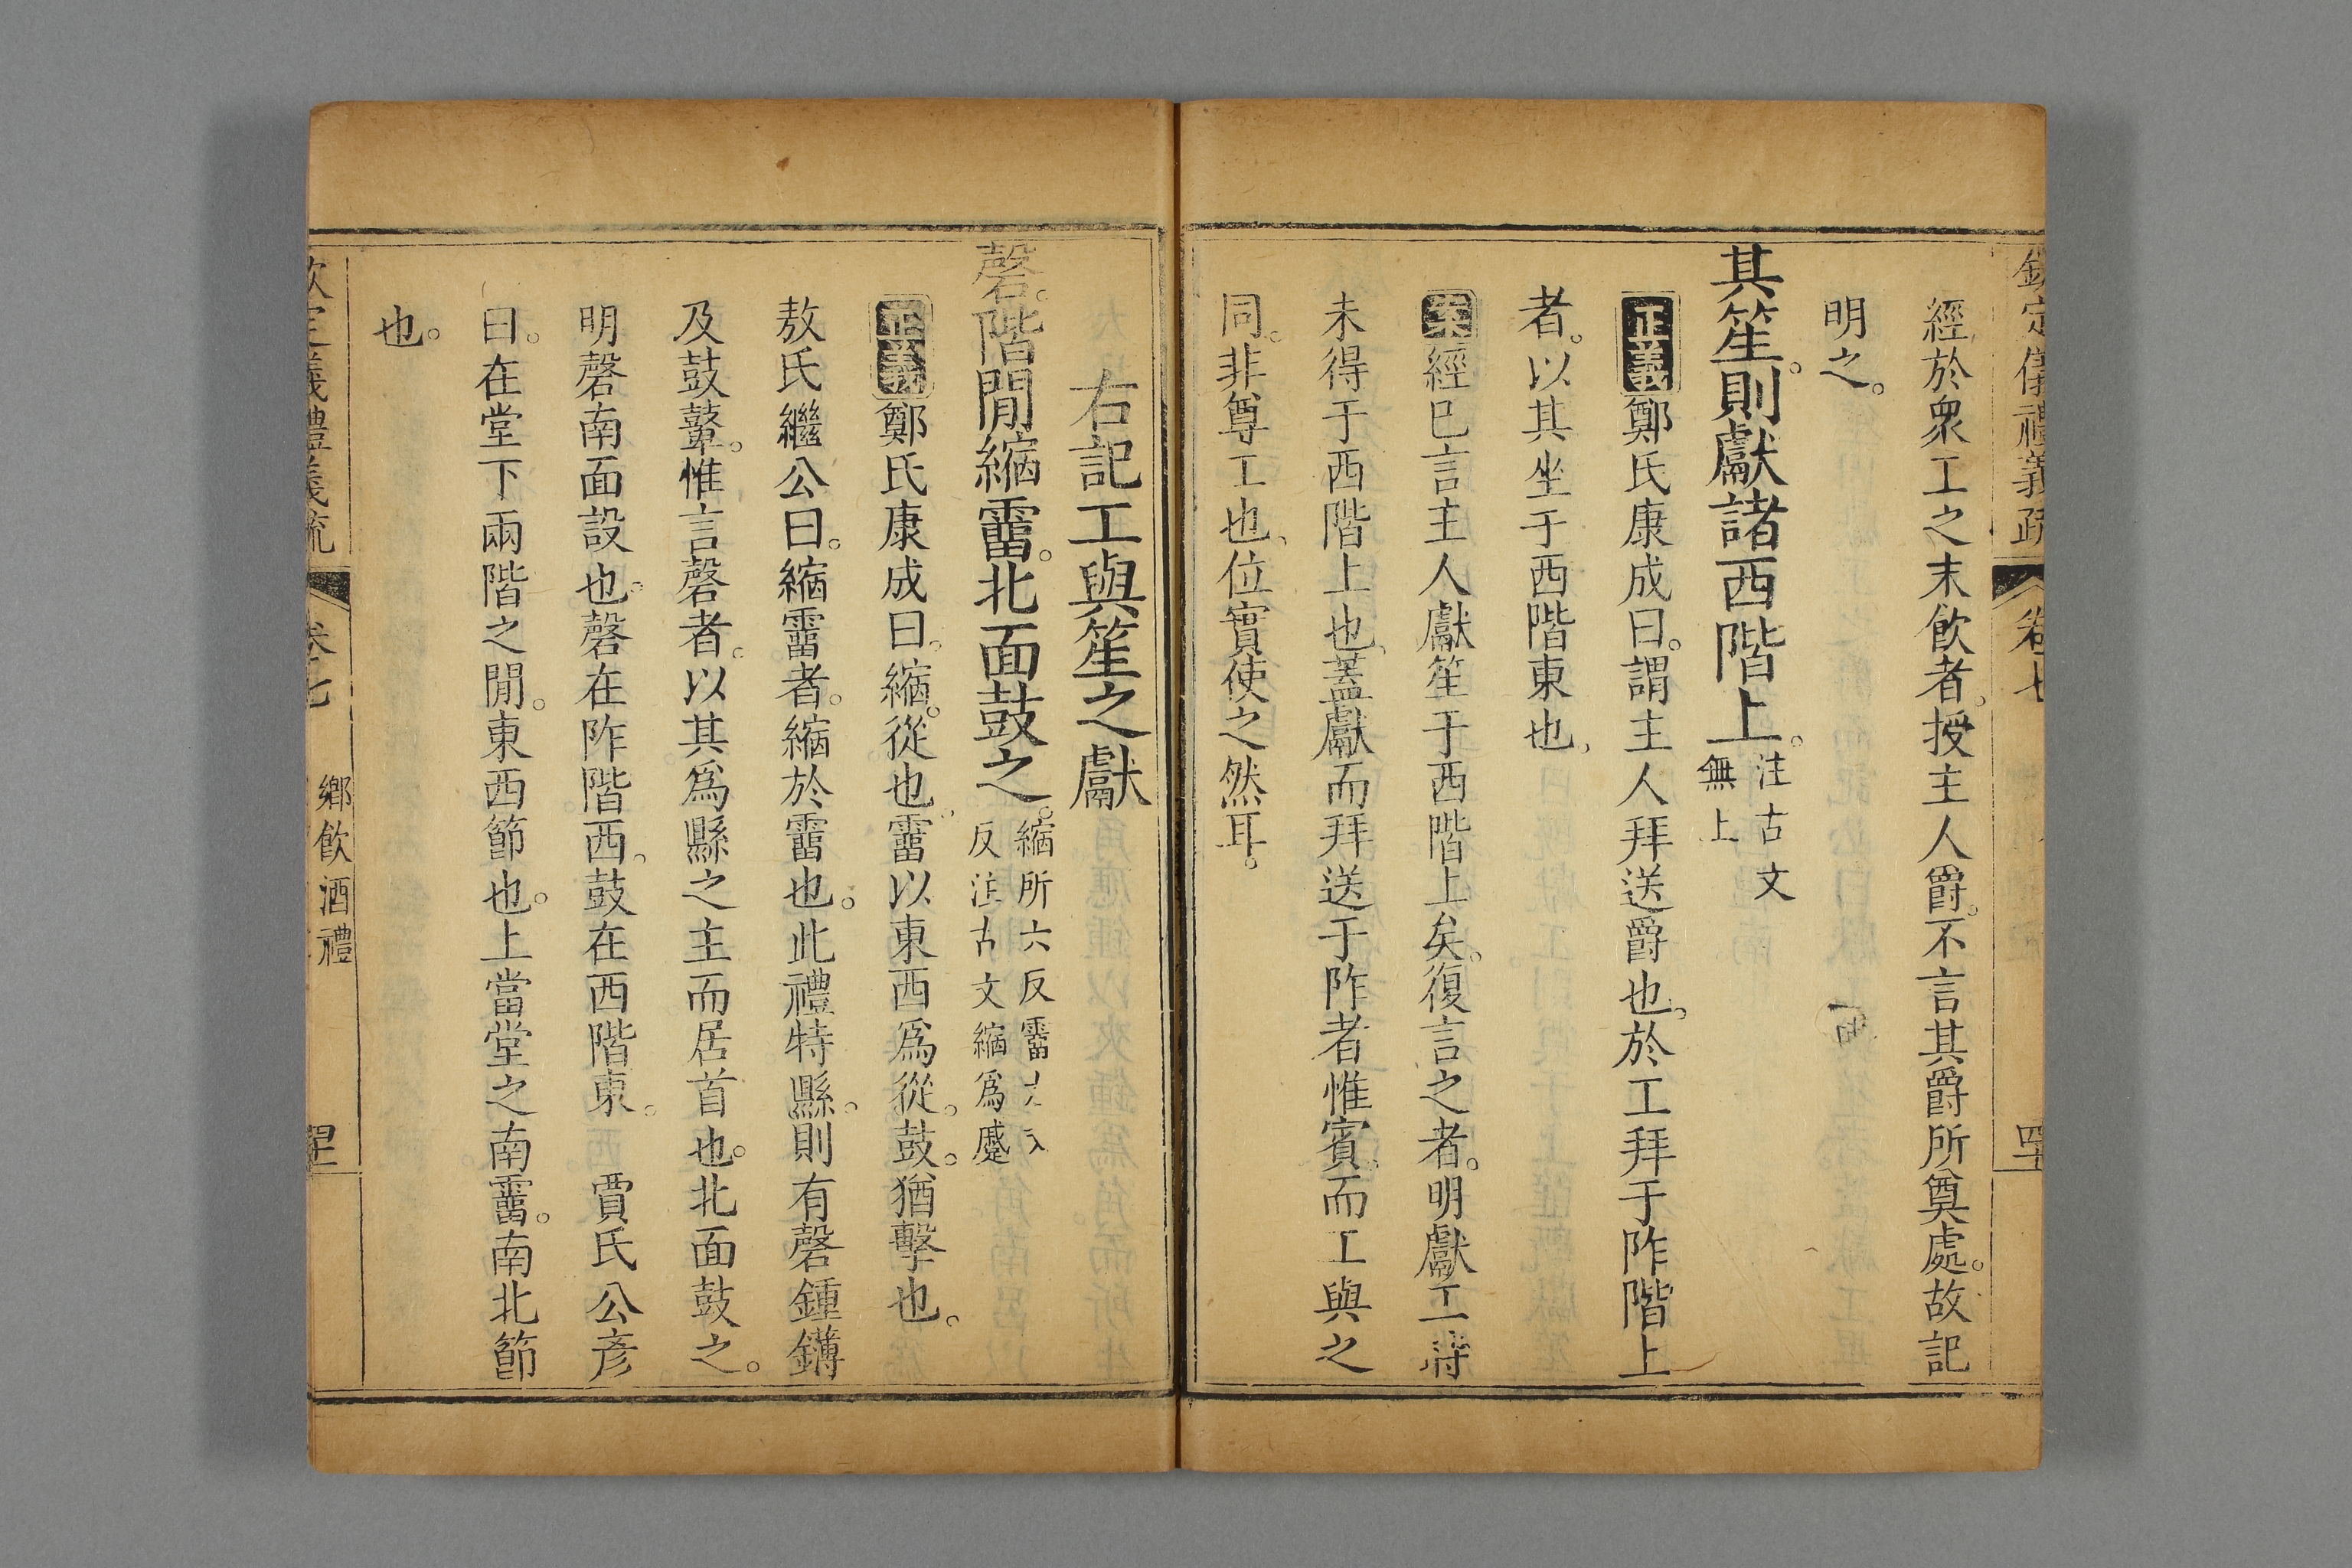 欽定儀禮義疏 卷七
經於衆工之末飲者。授主人爵。不言其爵所奠處。故記
明之。
其笙。則獻諸西階上。注古文
無上
正義鄭氏康成曰。謂主人拜送爵也。於工拜于阼階上
者。以其坐于西階東也。
案經已言主人獻笙于西階上矣。復言之者。明獻工時
未得于西階上也。蓋獻而拜送于阼者惟賓。而工與之
同。非尊工也。位實使之然耳。
右記工與笙之獻
磬。階閒縮霤。北面鼓之。縮所六反霤力又
反注古文縮爲蹙
正義鄭氏康成曰。縮。從也。霤以東西爲從。鼓。猶擊也。
敖氏繼公曰。縮霤者。縮於霤也。此禮特縣。則有磬鍾鑮
及鼓鼙。惟言磬者。以其爲縣之主而居首也。北面鼓之。
明磬南面設也。磬在阼階西。鼓在西階東。 賈氏公彥
曰。在堂下兩階之閒。東西節也。上當堂之南霤。南北節
也。
欽定儀禮義疏 卷七 鄉飲酒禮